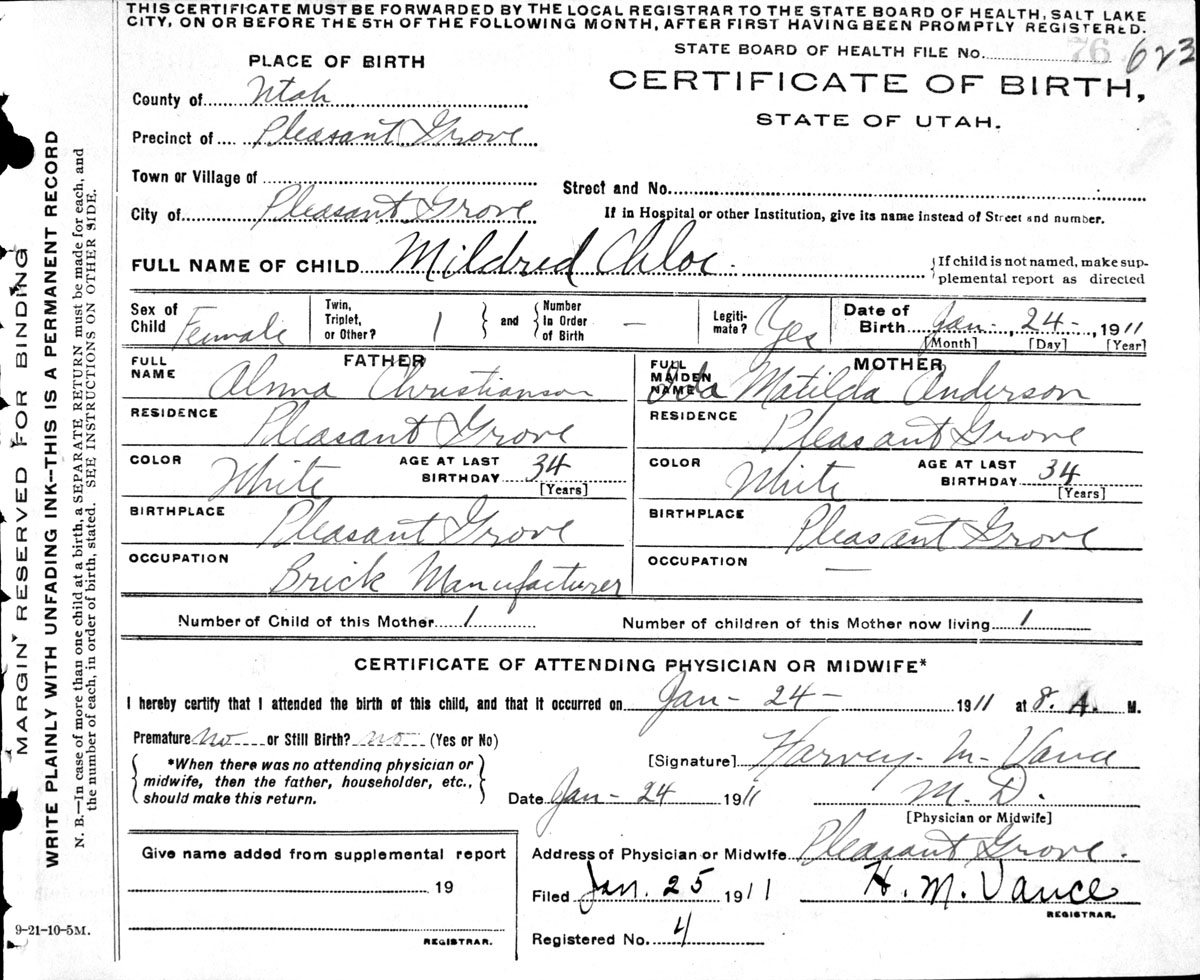 THIS CERTIFICATE MUST BE FORWARDED BY THE LOCAL REGISTRAR TO THE STATE BOARD OF HEALTH, SALT LAKE
CITY, ON OR BEFORE THE 5TH OF THE FOLLOWING MONTH, AFTER FIRST HAVING BEEN PROMPTLY REGISTERED.
STATE BOARD OF HEALTH FILE No. 76 623
PLACE OF BIRTH
CERTIFICATE OF BIRTH,
STATE OF UTAH.
County of Utah
Precinct of Pleasant Grove
Town or Village of
Street and No.
City of Pleasant Grove
If in Hospital or other Institution, give its name instead of Street and number.
FULL NAME OF CHILD Mildred Chloe. {If child is not named, make sup-
plemental report as directed
Sex of Child Female
Twin, Triplet, or Other? 1 } and { Number In Order of Birth —
Legiti-mate? Yes
Date of Birth Jan-, 24-, 1911
[Month] [Day] [Year]
FATHER
FULL NAME Alma Christianson
MOTHER
FULL MAIDEN NAME Matilda Anderson
RESIDENCE Pleasant Grove
RESIDENCE Pleasant Grove
COLOR White AGE AT LAST BIRTHDAY 34 [Years]
COLOR White AGE AT LAST BIRTHDAY 34 [Years]
BIRTHPLACE Pleasant Grove
BIRTHPLACE Pleasant Grove
OCCUPATION Brick Manufacturer
OCCUPATION —
Number of Child of this Mother 1 Number of children of this Mother now living 1
CERTIFICATE OF ATTENDING PHYSICIAN OR MIDWIFE*
I hereby certify that I attended the birth of this child, and that it occurred on Jan- 24- 1911 at 8. A. M.
Premature no or Still Birth? no (Yes or No)
[Signature] Harvey- M- Vance
{ *When there was no attending physician or
midwife, then the father, householder, etc.,
should make this return. }
Date Jan- 24 1911 M. D.
[Physician or Midwife]
Give name added from supplemental report
19
REGISTRAR.
Address of Physician or Midwife Pleasant Grove.
Filed Jan. 25 1911 H. M. Vance
REGISTRAR.
Registered No. 4
MARGIN RESERVED FOR BINDING
WRITE PLAINLY WITH UNFADING INK—THIS IS A PERMANENT RECORD
N. B.—In case of more than one child at a birth, a SEPARATE RETURN must be made for each, and
the number of each, in order of birth, stated. SEE INSTRUCTIONS ON OTHER SIDE.
9-21-10-5M.